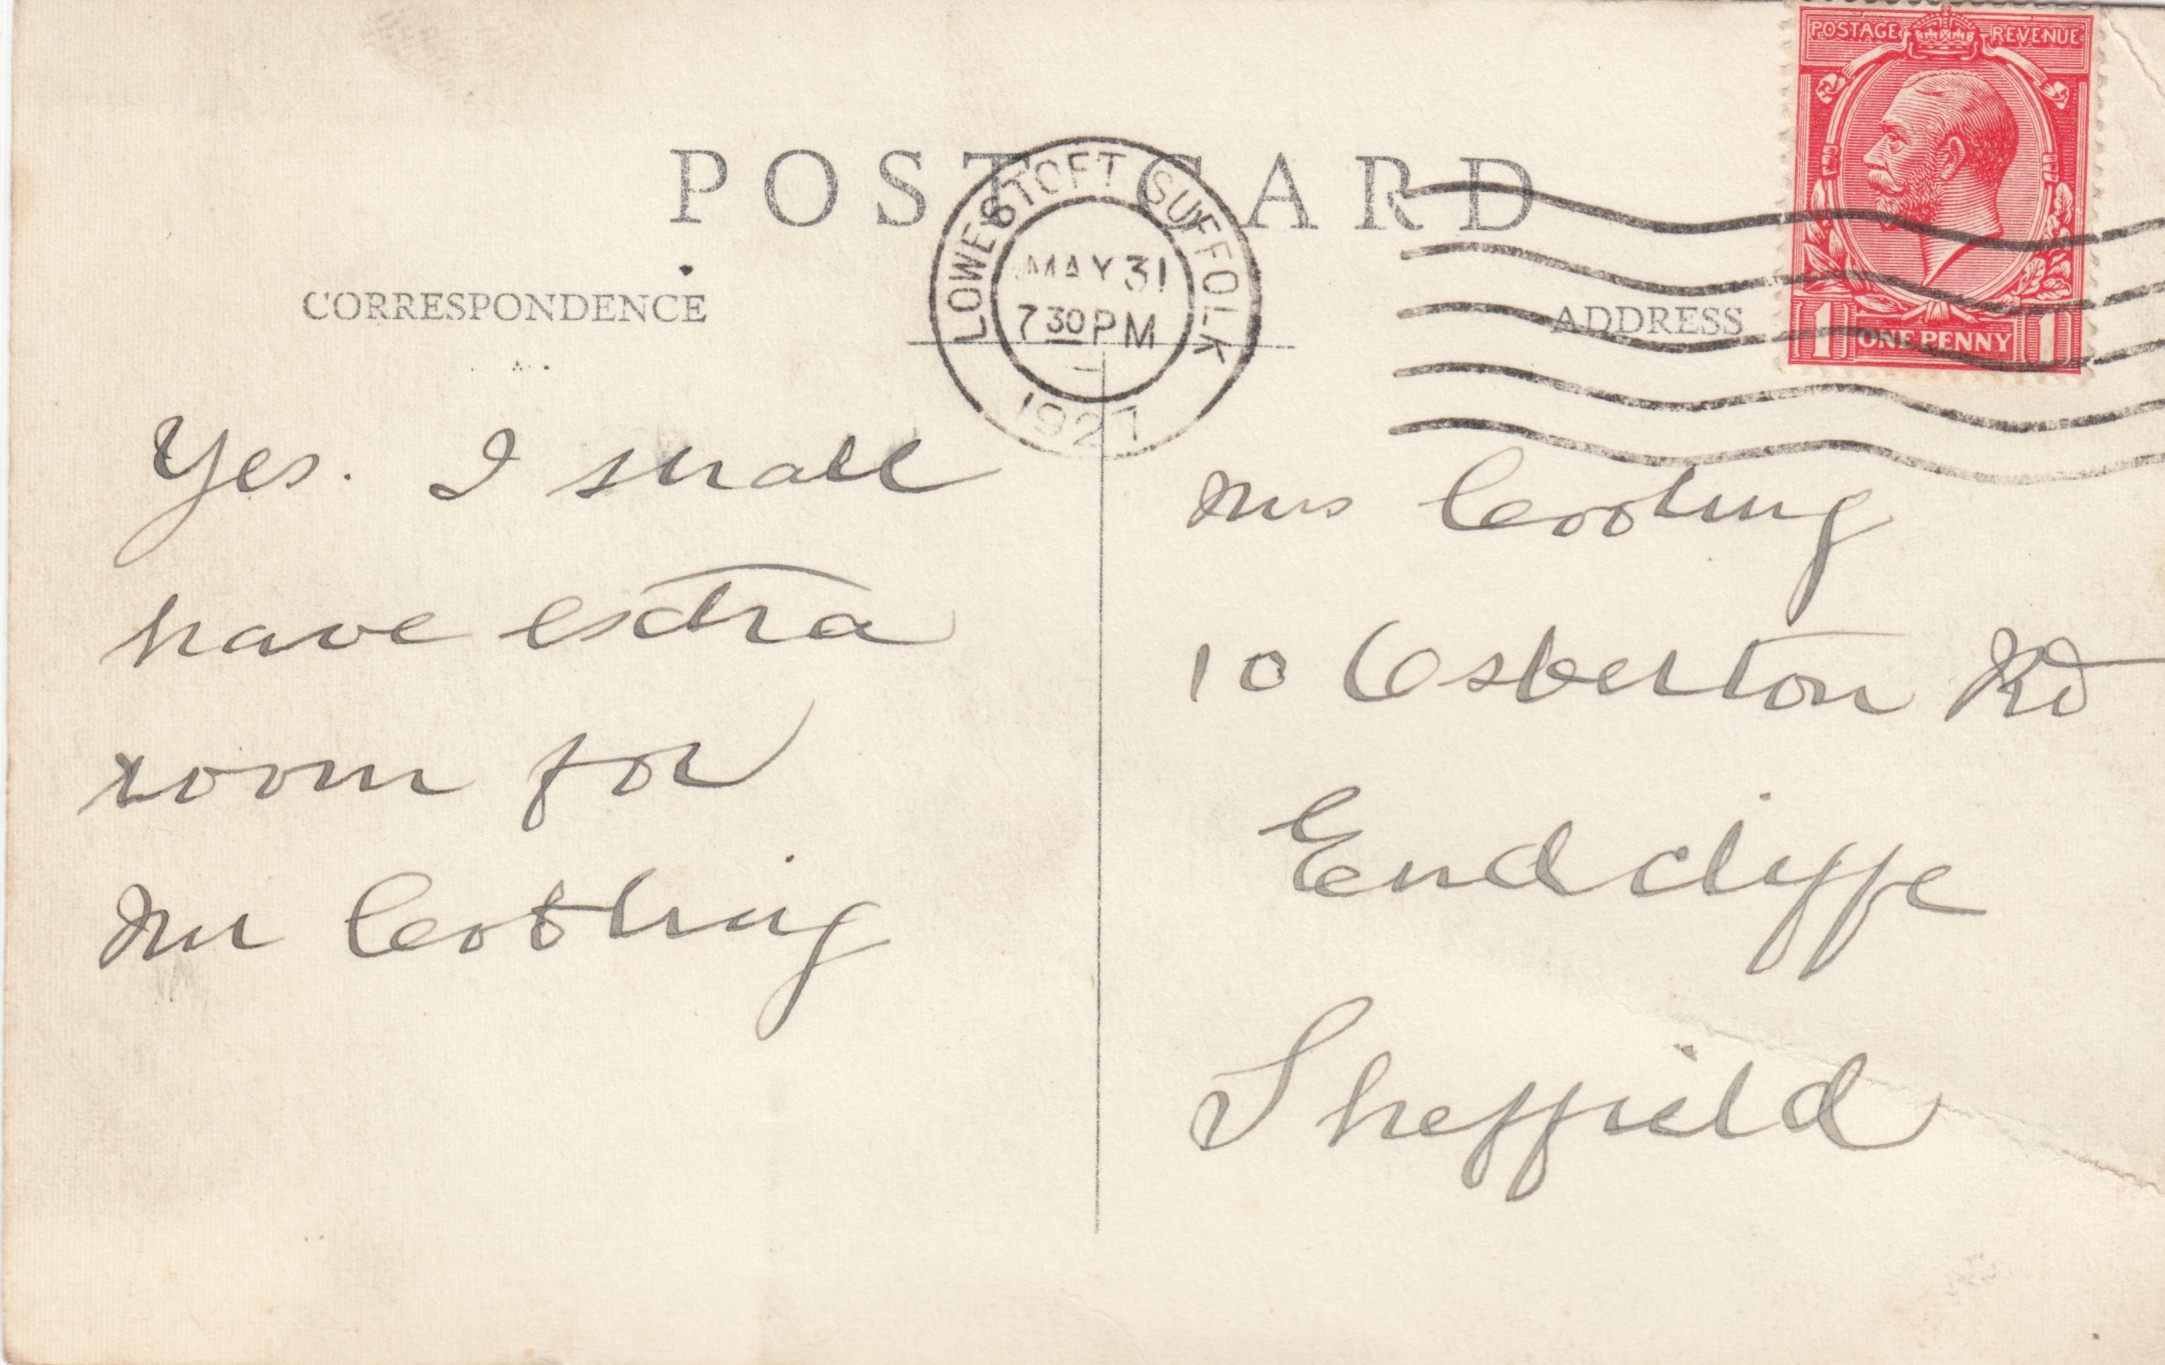 POST CARD
POSTAGE REVENUE
1 ONE PENNY 1
LOWESTOFT SUFFOLK
MAY 31
7 30 PM
1927
CORRESPONDENCE
ADDRESS
Yes. I shall
have extra
room for
Mr Cooling
Mrs Cooling
10 Osberton Rd
Endcliffe
Sheffield